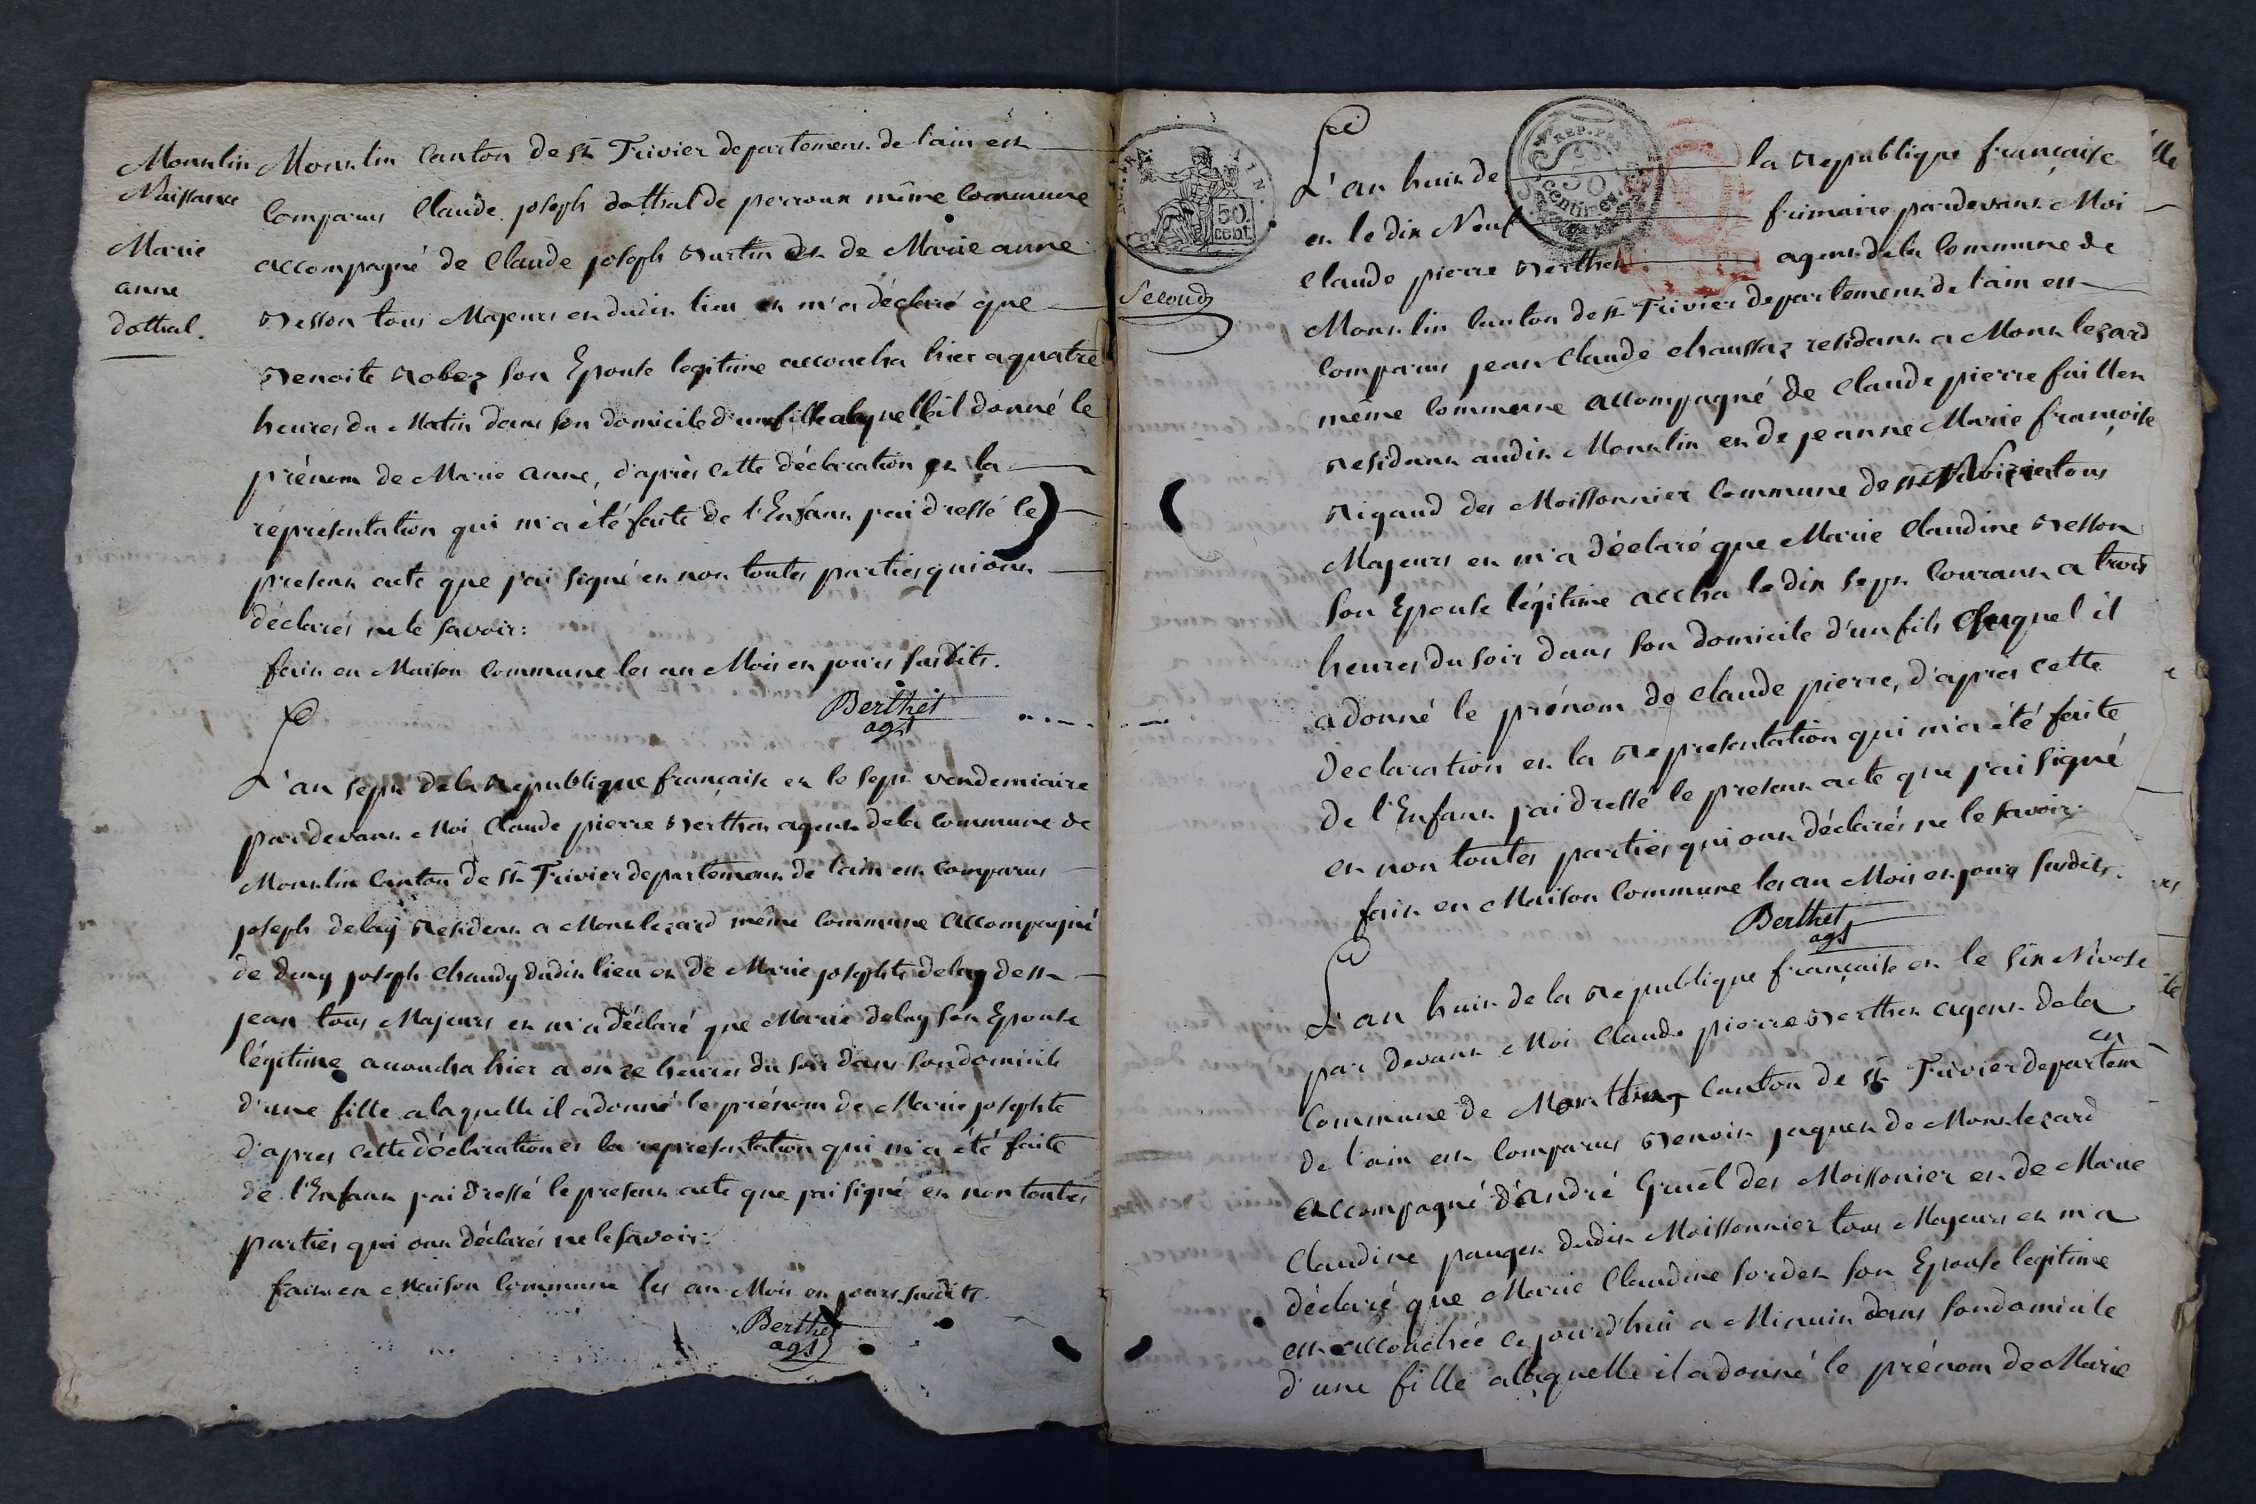 Mont lin
Naissance
Marie
anne
dothal.
Mont lin Canton de st Trivier departement de l'ain est
Comparus Claude joseph dothal de perroux même Commune
accompagné de Claude joseph Burtin et de Marie anne
Besson tous Majeurs et dudit lieu et m'a déclaré que
Benoite Robez son Epouse legitime accoucha hier a quatre
heures du Matin dans son domicile d'une fille a laquelle il donné le
prénom de Marie anne, d'après cette déclaration et la
réprésentation qui m'a été faite de l'Enfant j'ai dressé le
present acte que j'ai signé et non toutes parties qui ont
déclarés ne le savoir:
fait en Maison Commune les an Mois et jours susdits.
Berthet
agt
L'an sept de la Republique française et le sept vendemiaire
par devant Moi Claude pierre Berthet agent de la Commune de
Mont lin Canton de st Trivier departement de l'ain est Comparus
joseph delay Resident a Mont lezard même Commune accompagné
de deny joseph Chandy dudit lieu et de Marie josephte delay de st
jean tous Majeurs et m'a déclaré que Marie delay son Epouse
légitime accoucha hier a onze heures du soir dans son domicile
d'une fille a laquelle il a donné le prénom de Marie josephte
d'apres cette déclaration et la representation qui m'a été faite
de l'Enfant j'ai dressé le present acte que j'ai signé et non toutes
parties qui ont déclarés ne le savoir:
fait en Maison Commune les an Mois et jours susdits.
Berthet
agt
50
cent.
Second
REP. FRA
50
Centimes
L'an huit de la Republique française
et le dix Neuf frimaire par devant Moi
Claude pierre Berthet agent de la Commune de
Mont lin Canton de st Trivier departement de l'ain est
Comparus jean Claude Chaussaz residant a Mont lezard
même Commune accompagné de Claude pierre faillet
Resident audit Mont lin et de jeanne Marie françoise
Rigaud des Moissonnier Commune de st Nizier tous
Majeurs et m'a déclaré que Marie Claudine Besson
son Epouse légitime accha le dix sept Courant a trois
heures du soir dans son domicile d'un fils auquel il
a donné le prénom de Claude pierre, d'apries cette
déclaration et la Representation qui m'a été faite
de l'Enfant j'ai dressé le present acte que j'ai signé
et non toutes parties qui ont déclarés ne le savoir.
fait en Maison Commune les an Mois et jours susdits.
Berthet
agt
L'an huit de la Republique française et le six Nivose
par devant Moi Claude pierre Berthet agent de la
Commune de Mont lin Canton de st Trivier departem en
de l'ain est Comparus Benoit jaquet de Mont lezard
accompagné d'andré Gruel des Moissonier et de Marie
Claudine pauget dudit Moissonnier tous Majeurs et m'a
déclaré que Marie Claudine sordet son Epouse legitime
est accouchée ce jourd'hui a Minuit dans son domicile
d'une fille a laquelle il a donné le prénom de Marie